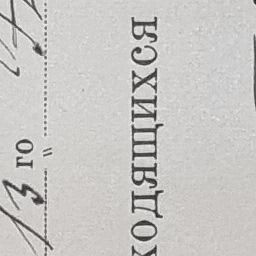 13 го
ходящихся